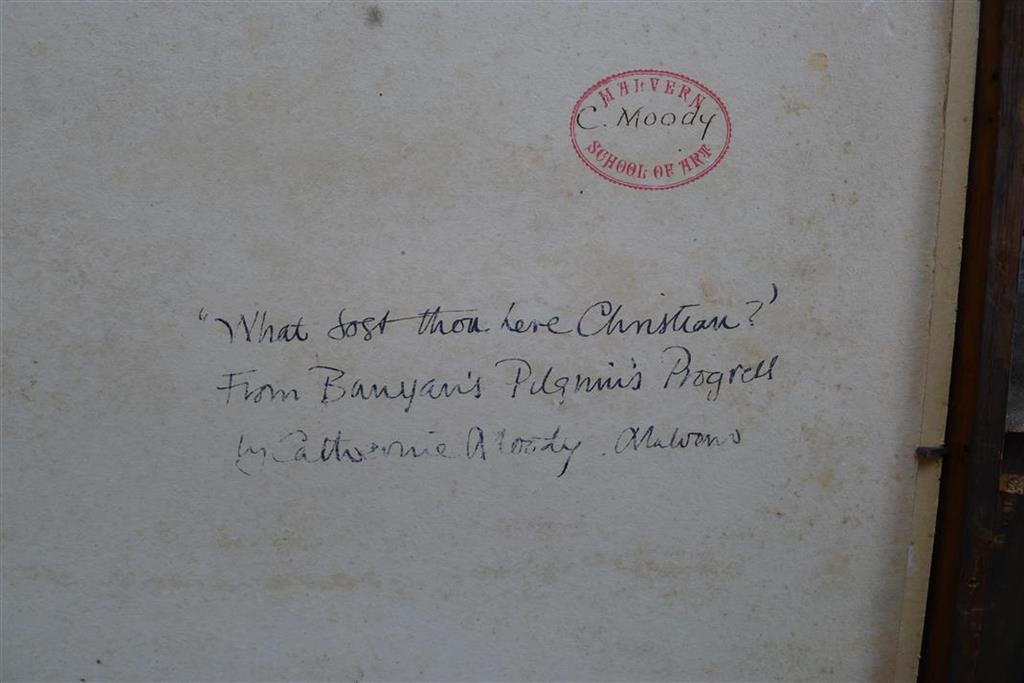 MALVERN
C. Moody
SCHOOL OF ART
"What dost thou here Christian?"
From Bunyan's Pilgrim's Progress
by Catherine Moody. Malvern